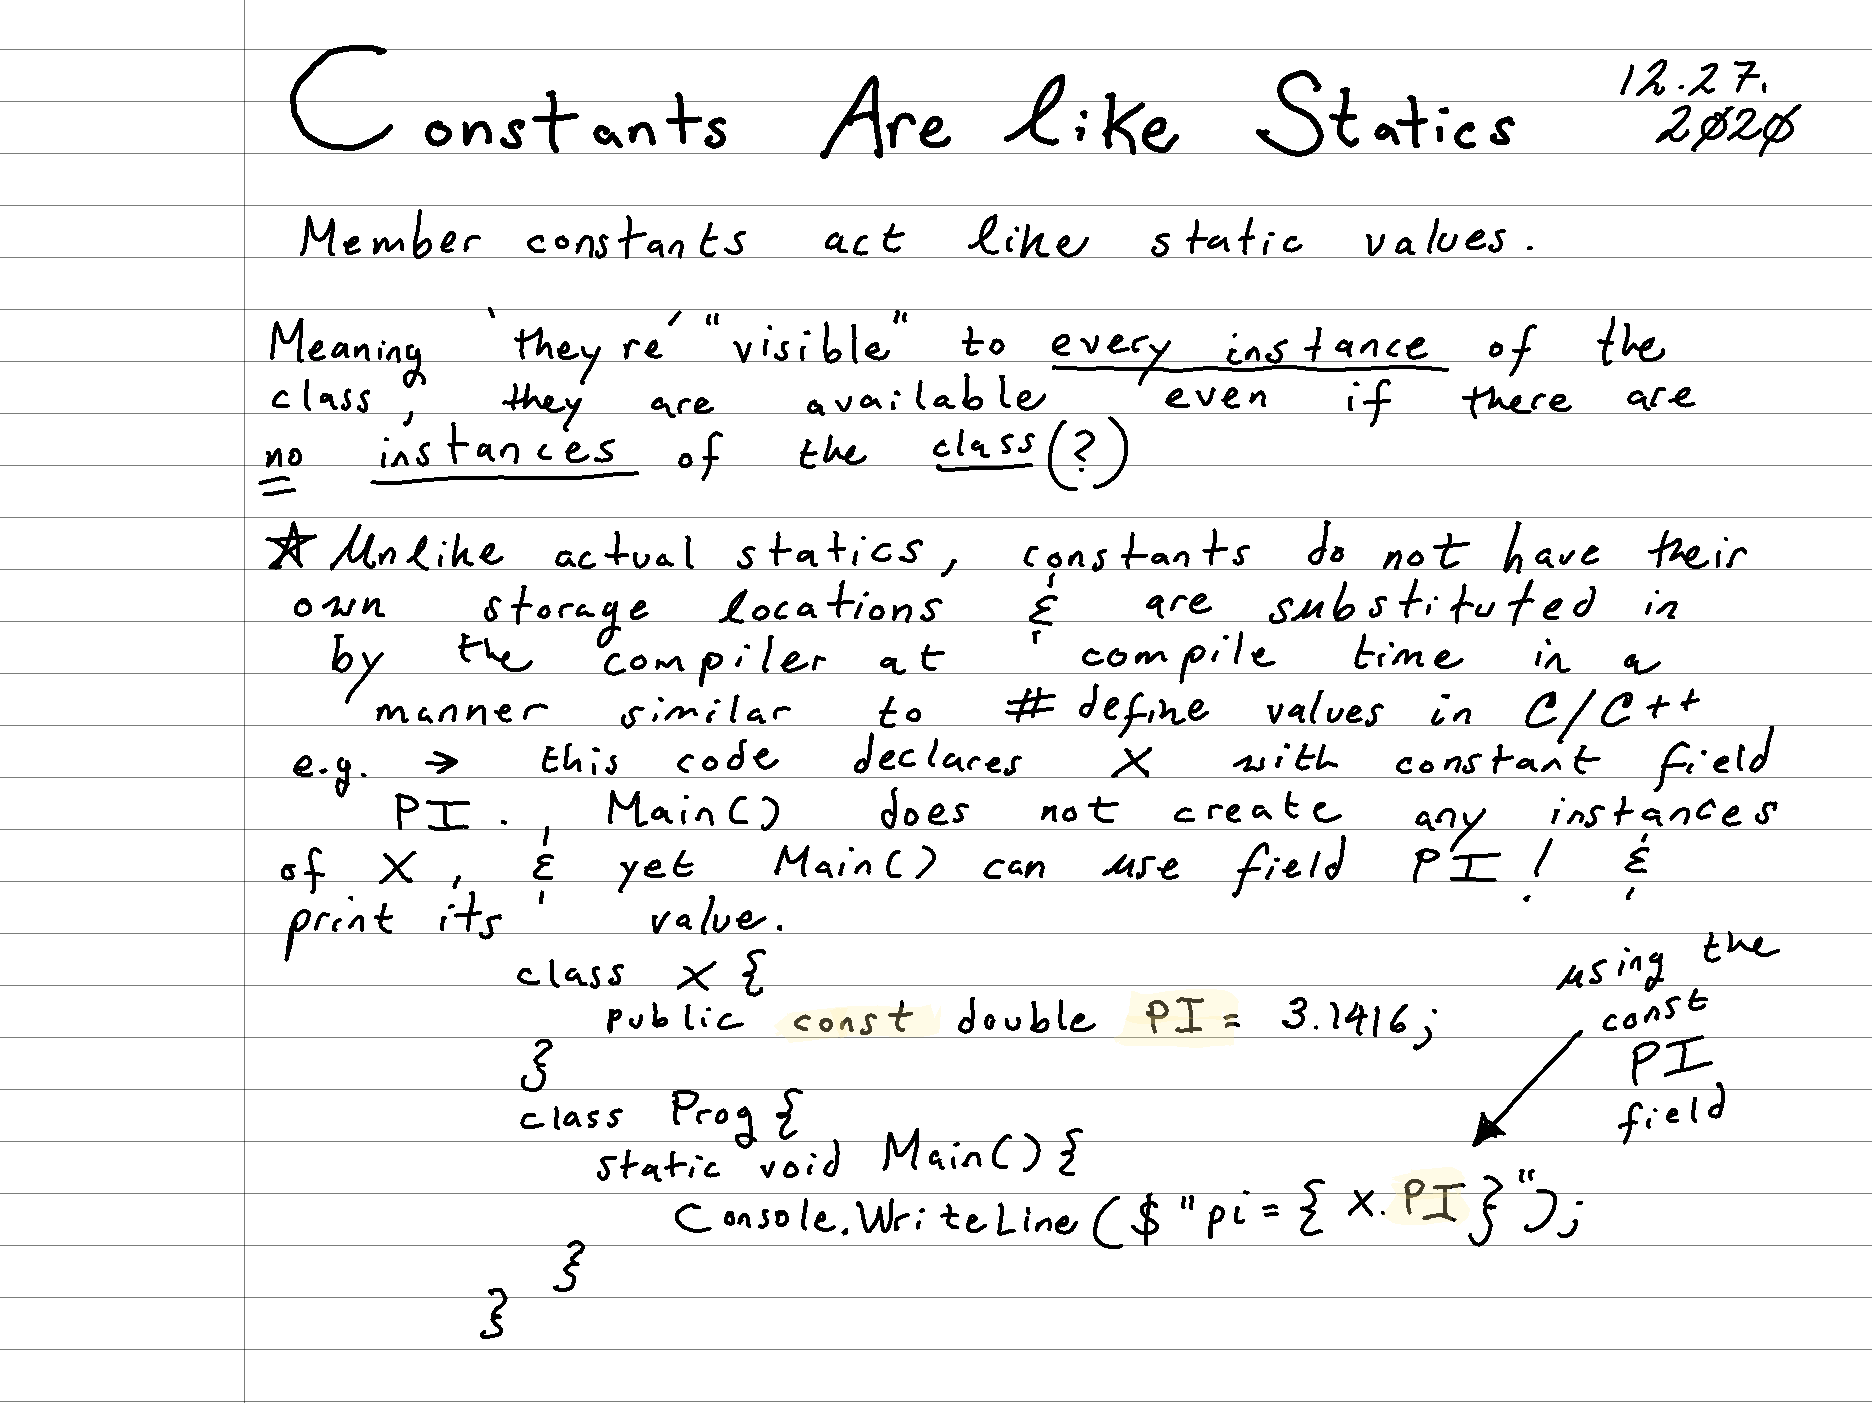 Constants Are like Statics
12.27.
2020
Member constants act like static values.
Meaning 'they're' "visible" to every instance of the
class, they are available even if there are
no instances of the class (?)
☆ Unlike actual statics, constants do not have their
own storage locations & are substituted in
by the compiler at compile time in a
manner similar to #define values in C/C++
e.g. → this code declares X with constant field
PI., Main() does not create any instances
of X, & yet Main() can use field PI! &
print its value.
class X {
public const double PI = 3.1416;
}
class Prog {
static void Main() {
Console.WriteLine($"pi={X.PI}");
}
}
using the
const
PI
field